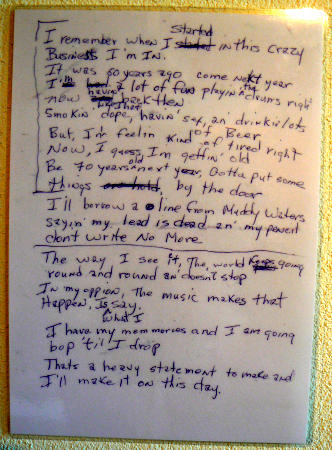 Started
I remember when I started in this crazy
Business I'm In.
It was 60 years ago come next year
I'm havin' a lot of fun playin' the drums right
now back then
Smokin' dope, havin' sex, an' drinkin' lots
of Beer
But, I'm feelin kind of tired right
Now, I guess I'm gettin' old
Be 70 years old next year, Gotta put some
things on hold, by the door
I'll borrow a line from Muddy Waters
sayin' my lead is dead an' my pencil
don't write No More
The way I see it, The, world Keeps going
'round and round an' doesn't stop
In my oppion, The music makes that
Happen, Is what I say,
I have my memmories and I am going
bop 'til I drop
Thats a heavy statement to make and
I'll make it on this day.